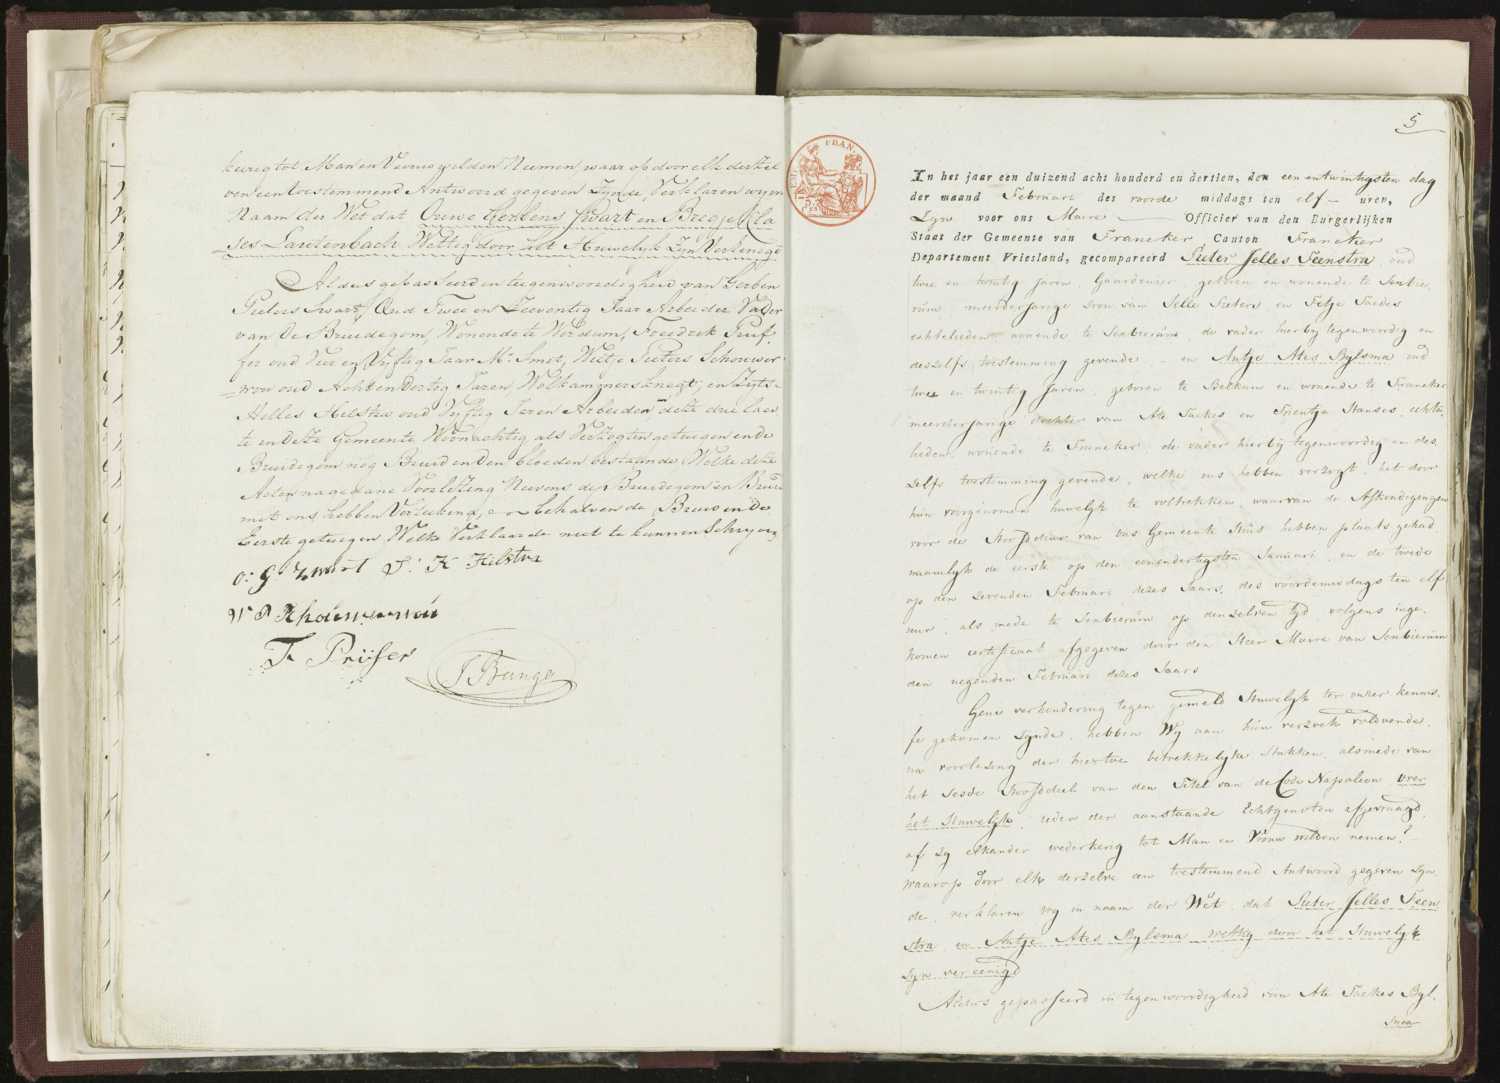 kerig tot Man en Vrouw wilden Neemen, waar op door elk derzel
ven een toestemmend Antwoord gegeven Zijnde, Verklaren wij in
Naam der Wet dat Ouwe Gerbens Swart en Broojl Kla
ses Lautenbach Wettig door het Huwelijk Zijn Vereenigd
Aldus gebasseerd in teegenswoordigheid van Gerben
Pieters Swart, Oud Twee en Zeeventig Jaar Arbeider Vader
van de Bruidegom, Wonende te Wirdum, Freedrik Pruf-
fer oud Vier en Vyftig Jaar Mr Smit, Wietje Pieters Schouwer
wou oud Acht en Dertig Jaren Wolkammersknegt, en Zijts
Helles Helstra oud Vyftig Jaren Arbeider, deze drie laas
te en deze Gemeente Woonachtig, als Verzogten getuigen en de
Bruidegom nog Bruid en Den bloeden bestaande, Welke deze
Acten na gedane Voorlezing Neevens de Bruidegom en Bruid
met ons hebben Vertekend, behalven de Bruid en de
Eerste getuigen Welke Verklaarde niet te kunnen Schryven
O: G: Zwart S: K Helstra
W P Schouwerwou
F. Prüfer
S Banga
5
FRAN.
In het jaar een duizend acht honderd en dertien, den een en twintigsten dag
der maand Februari des voorde middags ten elf — uren,
Zyn voor ons Maire — Officier van den Burgerlijken
Staat der Gemeente van Franeker, Canton Franeker
Departement Vriesland, gecompareerd Pieter Jelles Feenstra, oud
twee en twintig Jaren, Gaardenier, geboren en wonende te Sexbie
rüm, meerderjarige zoon van Jelle Pieters en Fetje Taedes
echtelieden wonende te Sexbierüm, de vader hierby tegenwoordig en
deszelfs toestemming gevende — en Antje Ates Bylsma oud
twee en twintig Jaren, geboren te Berlikum en wonende te Franeker
meerderjarige dochter van Ate Taekes en Trientje Hanses, echte
lieden, wonende te Franeker, de vader hierbij tegenwoordig en des
zelfs toestemming gevende, welke ons hebben verzogt het door
hün voorgenomen huwelijk te voltrekken, waarvan de Afkondigingen
voor de Hoofddeur van ons Gemeente Huis hebben plaats gehad
naamlyk de eerste op den eenendertigsten Januari en de twede
op den zevenden Februari dezes Jaars, des voordemiddags ten elf
uur, als mede te Sexbierüm op denzelven tyd, volgens inge-
komen certificaat afgegeven door den Heer Maire van Sexbierüm
den negenden Februari dezes Jaars
Gene verhindering tegen gemeld Huwelyk ter onzer kennis-
se gekomen zynde, hebben Wy aan hün verzoek voldoende,
na voorlezing der hiertoe betrekkelyke stukken, alsmede van
het sesde Hoofddeel van den Titel van de Code Napoleon over
het Huwelyk, ieder der aanstaande Echtgenoten afgevraagd,
of zy elkander wederkerig tot Man en Vrouw wilden nemen?
waarop door elk derzelve een toestemmend Antwoord gegeven zyn
de, verklaren wy in naam der Wet, dat Pieter Jelles Feen
stra en Antje Ates Bylsma wettig door het Huwelyk
zyn vereenigd
Aldus gepasseerd in tegenwoordigheid van Ate Taekes Byl-
sma